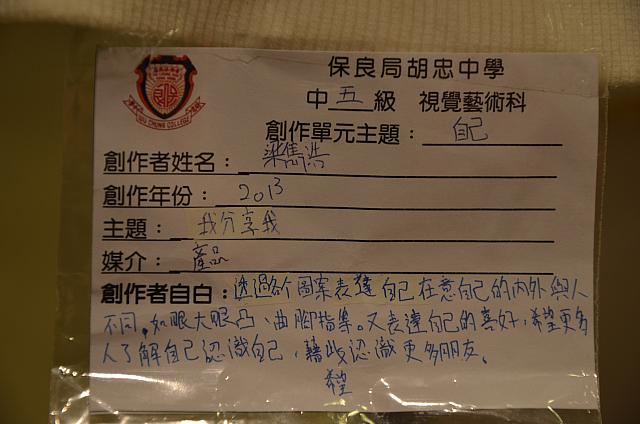 保良局胡忠中學
中五級 視覺藝術科
創作單元主題：自己
創作者姓名：梁雋浩
創作年份：2013
主題：我分享我
媒介：產品
創作者自白：透過各個圖案表達自己在意自己的內外與人
不同，如眼大眼凸、曲腳指等。又表達自己的喜好，希望更多
人了解自己認識自己，藉此認識更多朋友。
希望
WU CHUNG COLLEGE